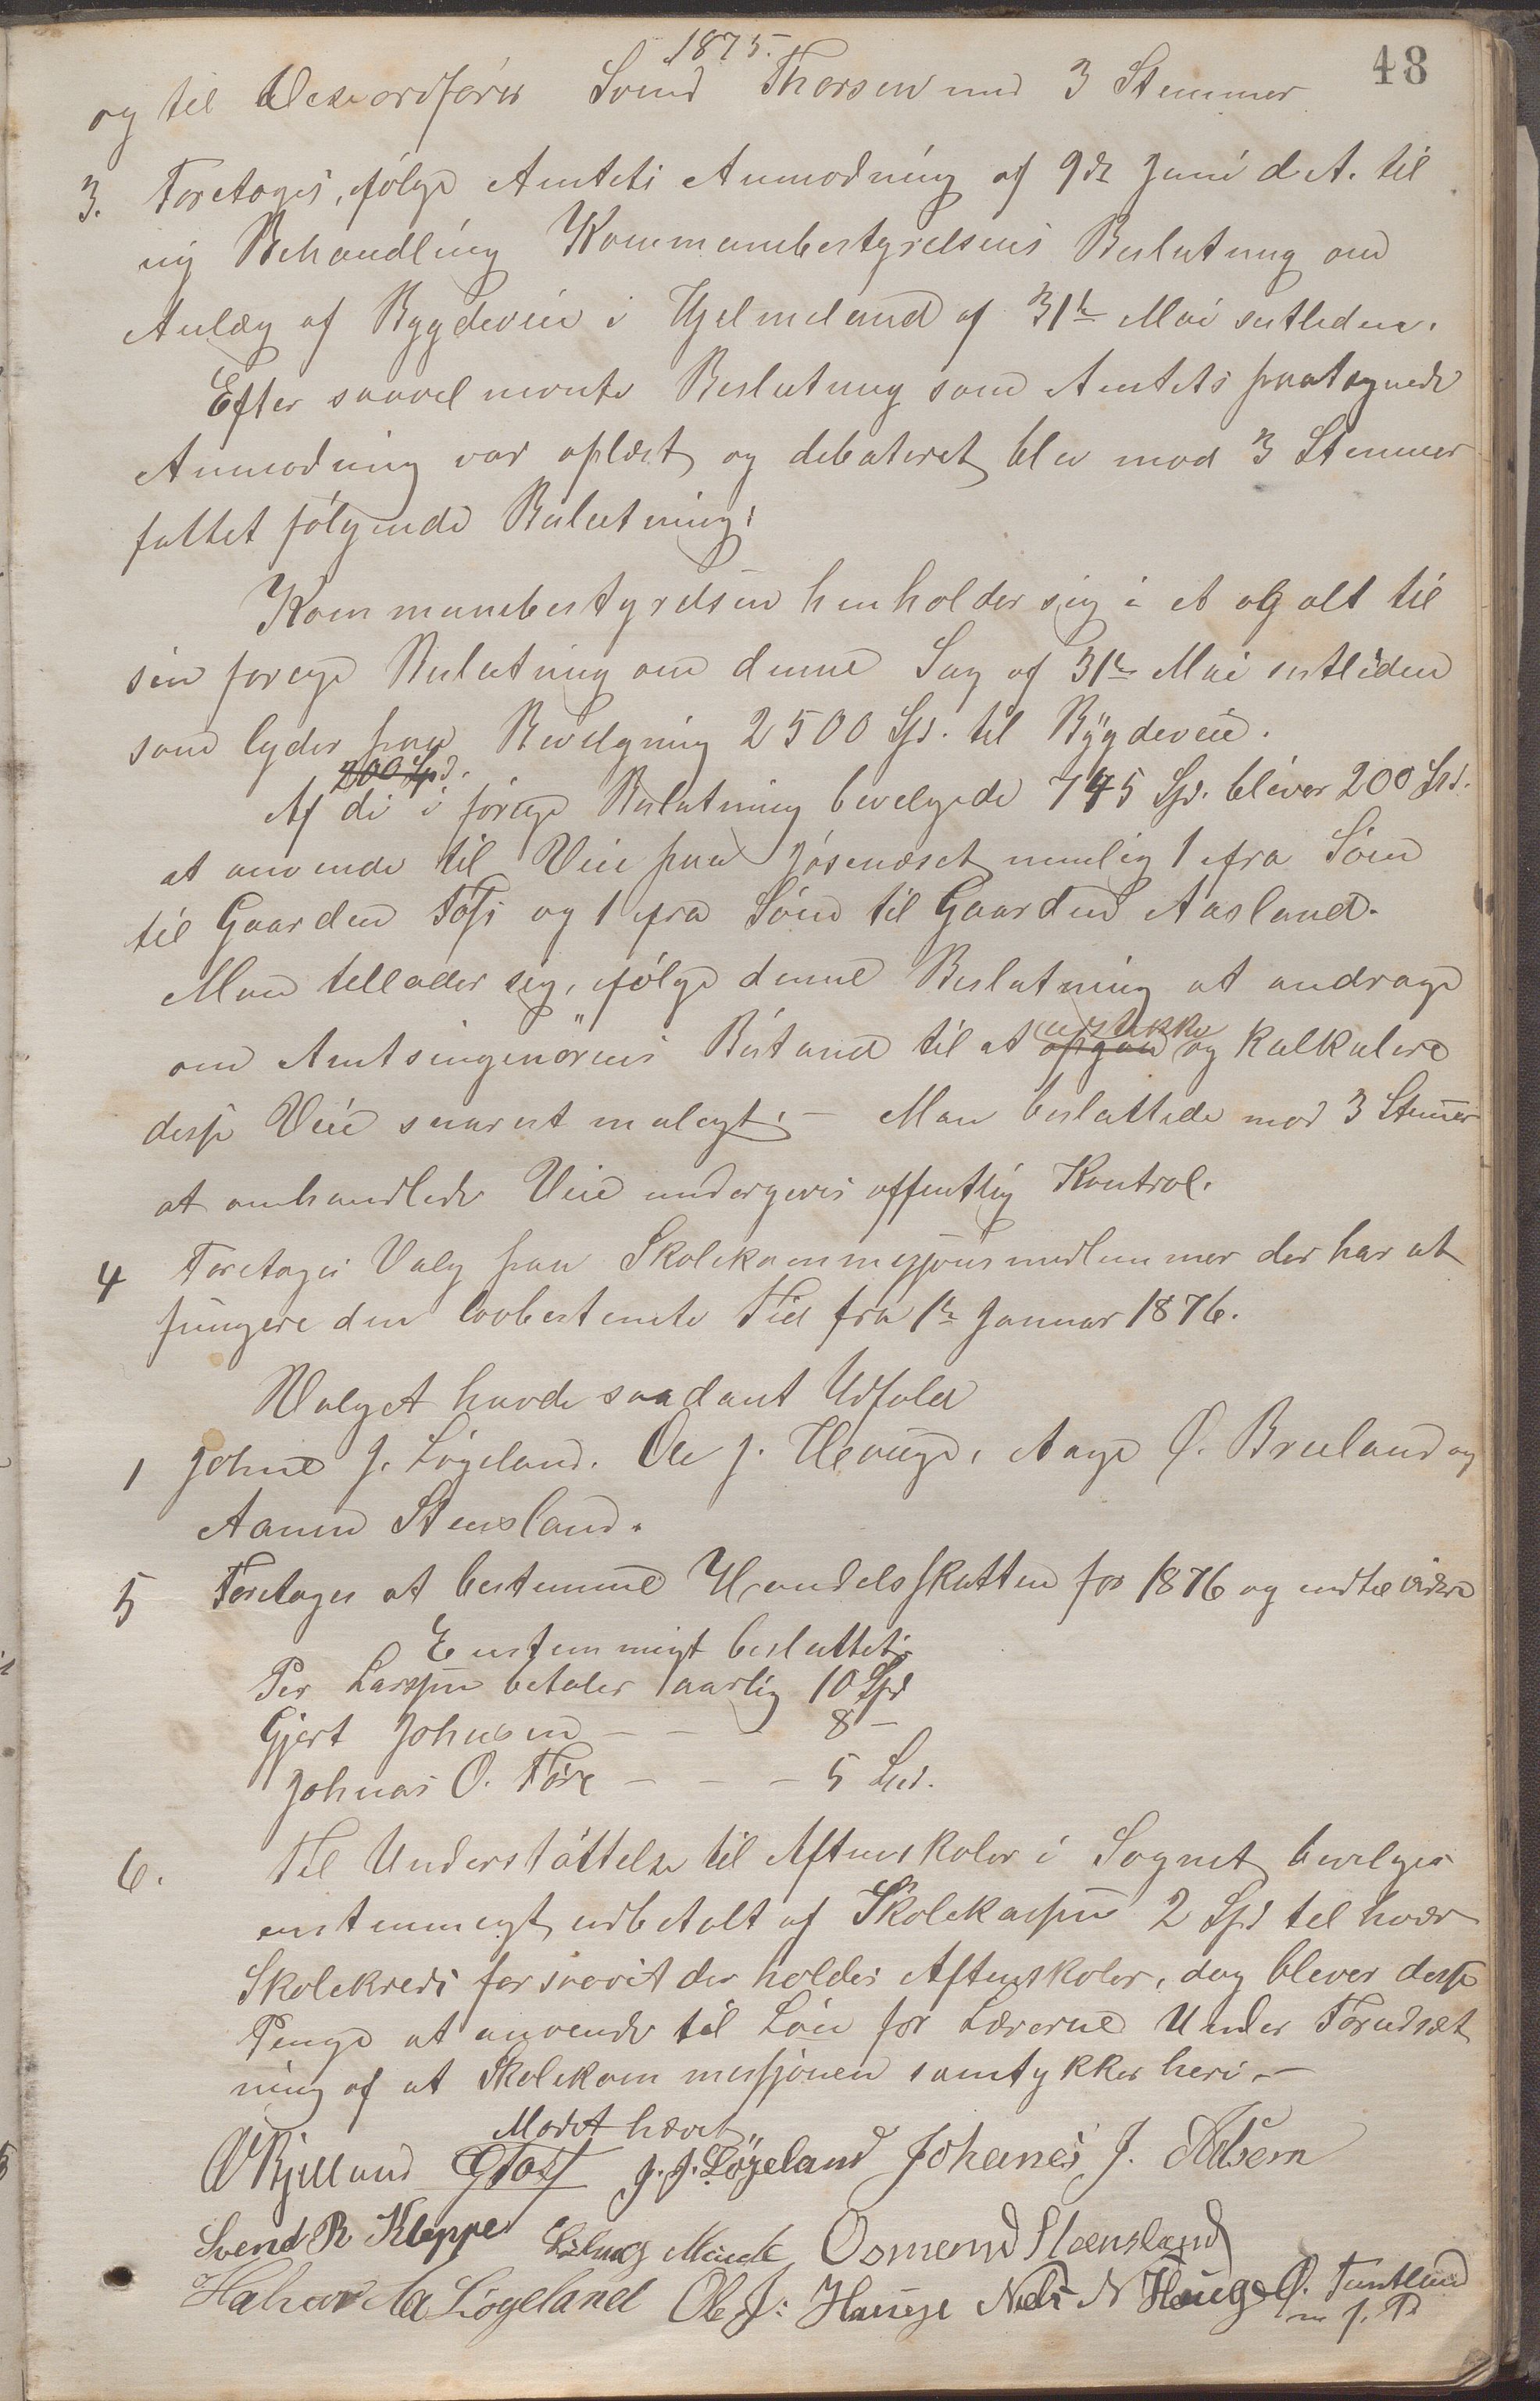 1875.
48
og til Viceordfører Svend Thorsen med 3 Stemmer
3. Foretoges, ifølge Amtets Anmodning af 9de Juni d. A. til
ny Behandling Kommunebestyrelsens Beslutning om
Anlæg af Bygdeveie i Hjelmeland af 31te Mai sidstleden.
Efter saavel nævnte Beslutning som Amtets paategnede
Anmodning var oplæst og debateret blev mod 3 Stemmer
fattet følgende Beslutning:
Kommunebestyrelsen henholder sig i et og alt til
sin forige Beslutning om denne Sag af 31te Mai sidstleden
som lyder paa Bevilgning 2500 Spd. til Bygdeveie.
200 Spd.
Af di i forige Beslutning bevilgede 745 Spd. bliver 200 Spd.
at anvende til Veie paa Jøsenæset nemlig 1 fra Søen
til Gaarden Tøfs og 1 fra Søen til Gaarden Aasland.
Man tillader sig, ifølge denne Beslutning at andrage
om Amtsingeniörens Bistand til at opgaa udstikke og kalkulere
disse Veie snarest muligt. – Man besluttede mod 3 Stemmer
at omhandlede Veie undergives offentlig Kontrol.
4 Foretoges Valg paa Skolekommissjonsmedlemmer der har at
fungere den lovbestemte Tid fra 1te Januar 1876.
Valget havde saadant Udfald
1 Johne J. Løgeland. Ole J. Hauge, Aage Ø. Breeland og
Aamund Stensland.
5 Foretoges at bestemme Handelsskatten for 1876 og indtil videre
Enstemmigt besluttet:
Per Larssen betaler aarlig 10 Spd
Gjert Johnsen – – – 8 –
Johnas O. Töre – – – 5 Spd.
6. Til Understöttelse til Aftenskoler i Sognet bevilges
enstemmigt udbetalt af Skolekassen 2 Spd til hver
Skolekreds forsaavit der holdes Aftenskoler, dog bliver disse
Penge at anvende til Løn for Lærerne Under Forudsæt
ning af at Skolekommissjonen samtykker heri. –
Mødet hævet
O Kjelland GTøsf J. J. Løgeland Johanes J. Aalsem
Svend R Kleppe Minde Osmend Steensland
Halvor Løgeland Ole J: Hauge Nels N Hauge Ø. Tuntland
m. f. P.